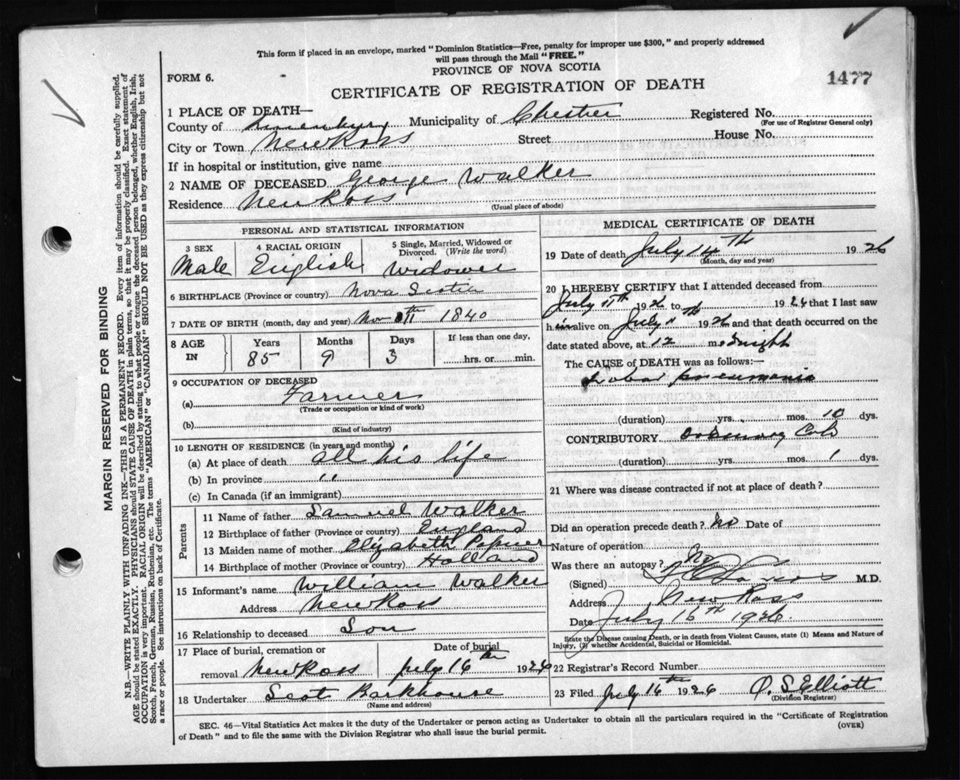 This form if placed in an envelope, marked "Dominion Statistics—Free, penalty for improper use $300," and properly addressed
will pass through the Mail "FREE."
FORM 6.
PROVINCE OF NOVA SCOTIA
1477
CERTIFICATE OF REGISTRATION OF DEATH
1 PLACE OF DEATH—
County of Lunenburg Municipality of Chester Registered No.
(For use of Registrar General only)
City or Town New Ross Street House No.
If in hospital or institution, give name
2 NAME OF DECEASED George Walker
Residence New Ross
(Usual place of abode)
PERSONAL AND STATISTICAL INFORMATION
3 SEX 4 RACIAL ORIGIN 5 Single, Married, Widowed or Divorced. (Write the word)
Male English Widower
6 BIRTHPLACE (Province or country) Nova Scotia
7 DATE OF BIRTH (month, day and year) 1840
8 AGE IN Years Months Days If less than one day,
85 9 3 hrs. or min.
9 OCCUPATION OF DECEASED
(a) Farmer
(Trade or occupation or kind of work)
(b)
(Kind of industry)
10 LENGTH OF RESIDENCE (in years and months)
(a) At place of death all his life
(b) In province "
(c) In Canada (if an immigrant)
Parents
11 Name of father Samuel Walker
12 Birthplace of father (Province or country) England
13 Maiden name of mother Elizabeth
14 Birthplace of mother (Province or Country) Holland
15 Informant's name William Walker
Address New Ross
16 Relationship to deceased Son
17 Place of burial, cremation or removal New Ross Date of burial July 16th 1926
18 Undertaker Scott Barkhouse
(Name and address)
MEDICAL CERTIFICATE OF DEATH
19 Date of death July 14th 1926
(Month, day and year)
20 I HEREBY CERTIFY that I attended deceased from
July 11th 1926 to 1926 that I last saw
him alive on July 11th 1926 and that death occurred on the
date stated above, at 12 midnight
The CAUSE of DEATH was as follows:—
Lobar pneumonia
(duration) yrs. mos. 10 dys.
CONTRIBUTORY
(duration) yrs. mos. 1 dys.
21 Where was disease contracted if not at place of death?
Did an operation precede death? No Date of
Nature of operation
Was there an autopsy? No
(Signed) M.D.
Address New Ross
Date July 16th 1926
State the Disease causing Death, or in death from Violent Causes, state (1) Means and Nature of
Injury, (2) whether Accidental, Suicidal or Homicidal.
22 Registrar's Record Number
23 Filed July 16th 1926 O. S. Elliott
(Division Registrar)
SEC. 46—Vital Statistics Act makes it the duty of the Undertaker or person acting as Undertaker to obtain all the particulars required in the "Certificate of Registration
of Death" and to file the same with the Division Registrar who shall issue the burial permit.
(OVER)
MARGIN RESERVED FOR BINDING
N.B.—WRITE PLAINLY WITH UNFADING INK—THIS IS A PERMANENT RECORD. Every item of information should be carefully supplied.
AGE should be stated EXACTLY. PHYSICIANS should STATE CAUSE OF DEATH in plain terms, so that it may be properly classified. Exact statement of
OCCUPATION is very important. RACIAL ORIGIN will be described by stating to what people or tongue the deceased person belonged, whether English, Irish,
Scotch, French, German, Russian, Ruthenian, etc. The terms "AMERICAN" or "CANADIAN" SHOULD NOT BE USED as they express citizenship but not
a race or people. See instructions on back of Certificate.